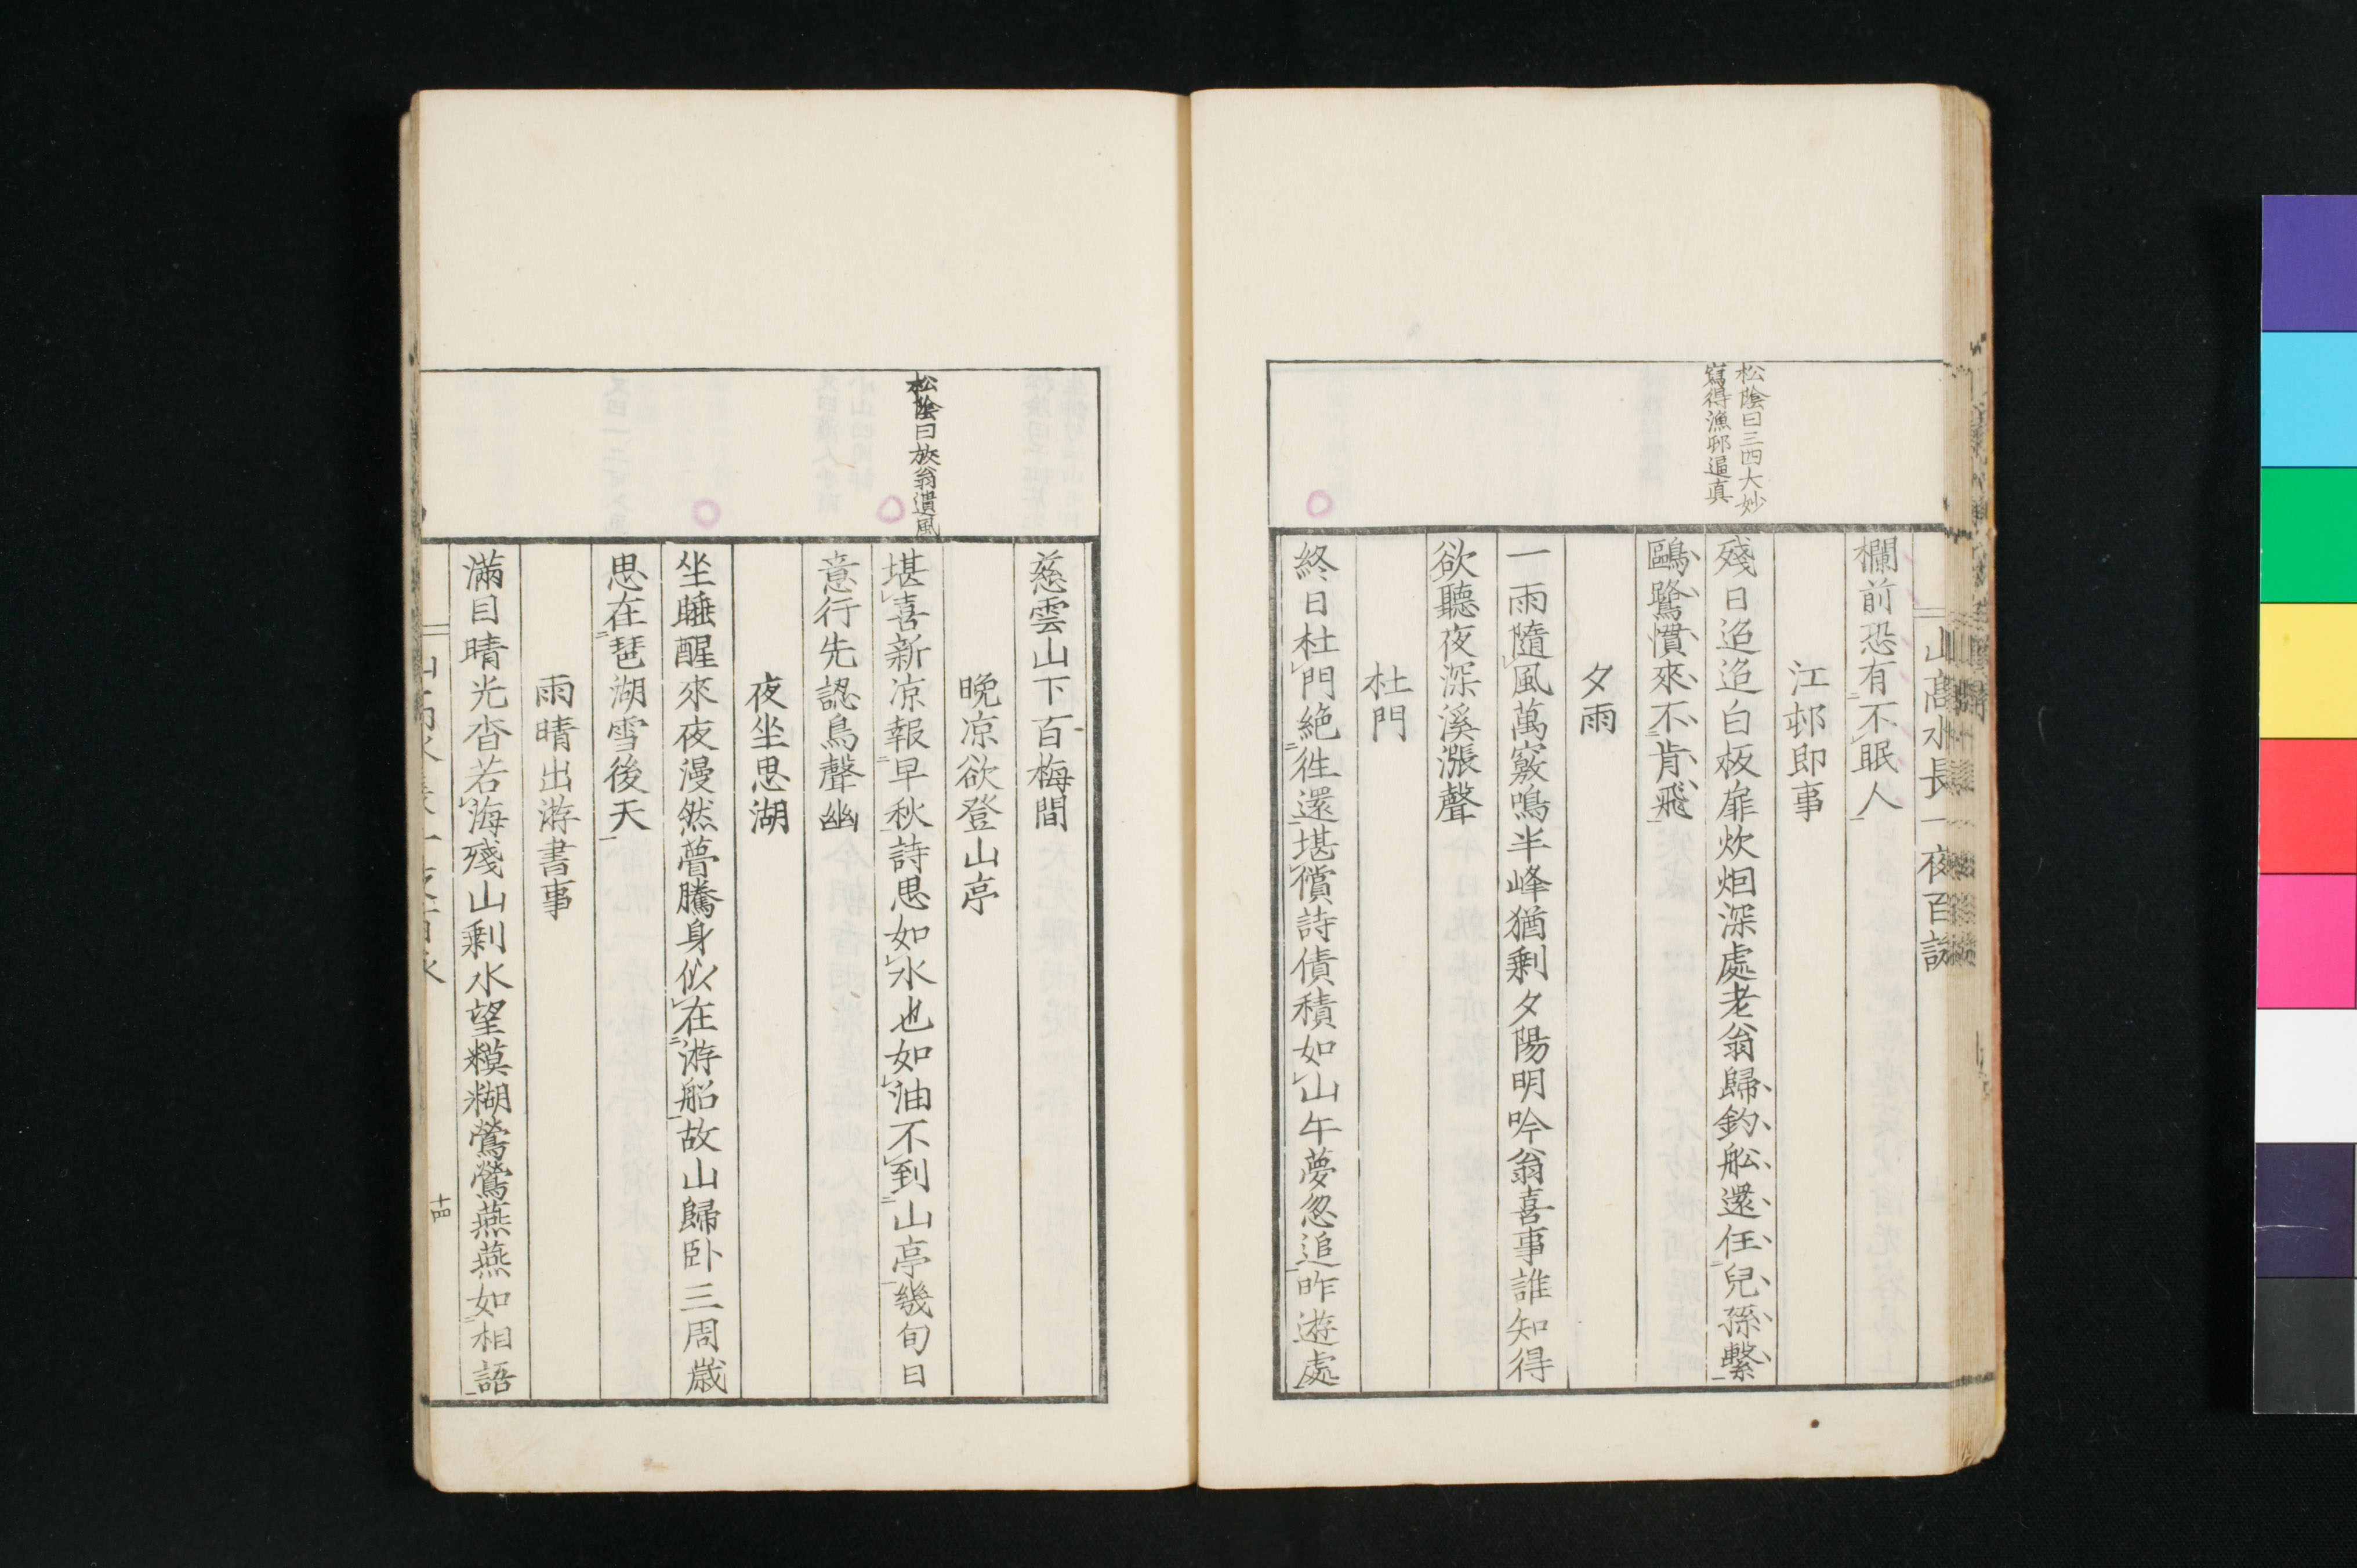 山高水長一夜百詠
欄前恐有不眠人
江邨即事
松陰曰三四大妙
寫得漁邨逼真
殘日迢迢白板扉炊烟深處老翁歸釣舩還任兒孫繫
鷗鷺慣來不肯飛
夕雨
一雨隨風萬竅鳴半峰猶剩夕陽明吟翁喜事誰知得
欲聽夜深溪漲聲
杜門
終日杜門絶徃還堪償詩債積如山午夢忽追昨遊處
慈雲山下百梅間
晩凉欲登山亭
松陰曰放翁遺風
堪喜新凉報早秋詩思如水也如油不到山亭幾旬日
意行先認鳥聲幽
夜坐思湖
坐睡醒來夜漫然瞢騰身似在游船故山歸卧三周歳
思在琶湖雪後天
雨晴出游書事
滿目晴光杳若海殘山剩水望糢糊鶯鶯燕燕如相語
十四